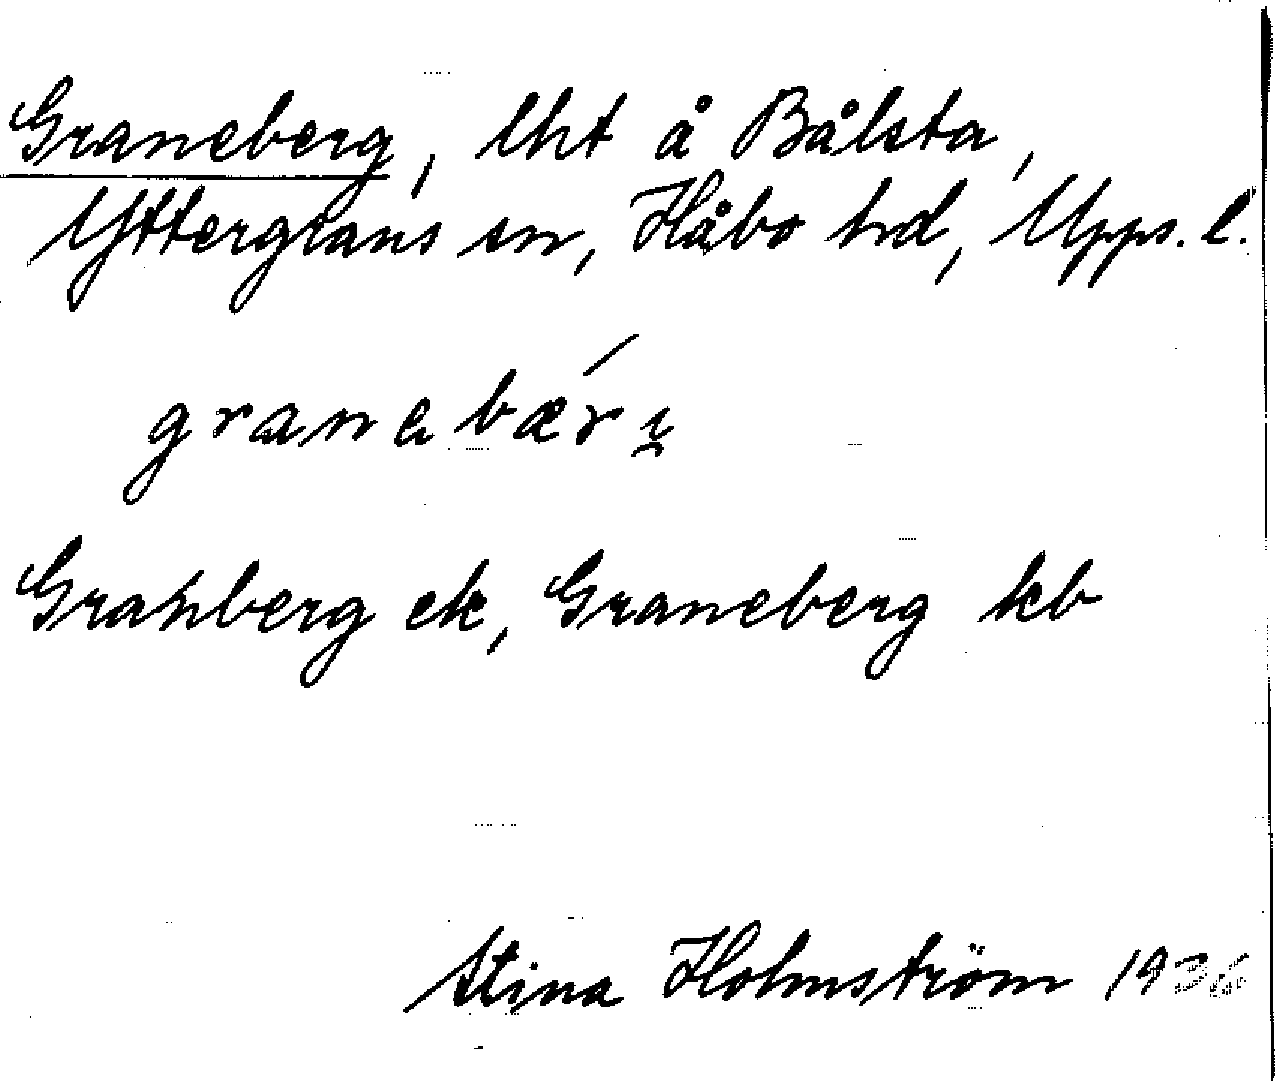 Graneberg, lht å Bålsta,
Yttergrans sn, Håbo hd, Upps. l.
granebǽrι̯
Granberg ek, Graneberg kb
Stina Holmström 1936